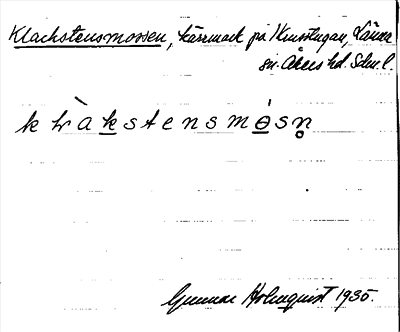 Klackstensmossen, kärrmark på Kinstugan, Länna
sn. Åkers hd. Sdm.l.
k w̆ àk s t e n s m ɵ́ s n̥
Gunnar Holmquist 1935.